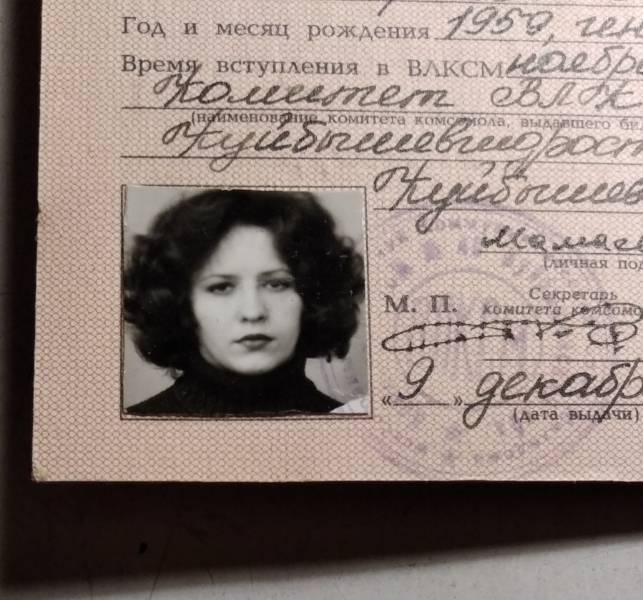 Год и месяц рождения 1959,
Время вступления в ВЛКСМ ноябр
Комитет ВЛК
(наименование комитета комсомола, выдавшего би
Куйбышевгидрост
Куйбышев
(личная под
М. П.
Секретарь
комитета комсомо
„9„ декабр
(дата выдачи)